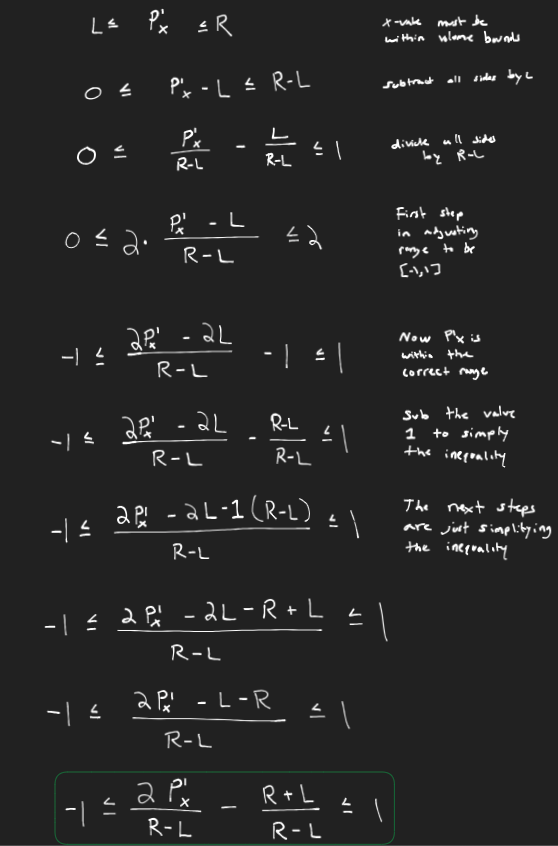 L ≤ P'x ≤ R
x-value must be
within volume bounds
0 ≤ P'x - L ≤ R-L
subtract all sides by L
0 ≤ P'x/R-L - L/R-L ≤ 1
divide all sides
by R-L
0 ≤ 2 · P'x - L/R-L ≤ 2
First step
in adjusting
range to be
[-1,1]
-1 ≤ 2P'x - 2L/R-L - 1 ≤ 1
Now P'x is
within the
correct range
-1 ≤ 2P'x - 2L/R-L - R-L/R-L ≤ 1
Sub the value
1 to simply
the inequality
-1 ≤ 2P'x - 2L-1(R-L)/R-L ≤ 1
The next steps
are just simplifying
the inequality
-1 ≤ 2P'x - 2L-R+L/R-L ≤ 1
-1 ≤ 2P'x - L-R/R-L ≤ 1
-1 ≤ 2P'x/R-L - R+L/R-L ≤ 1